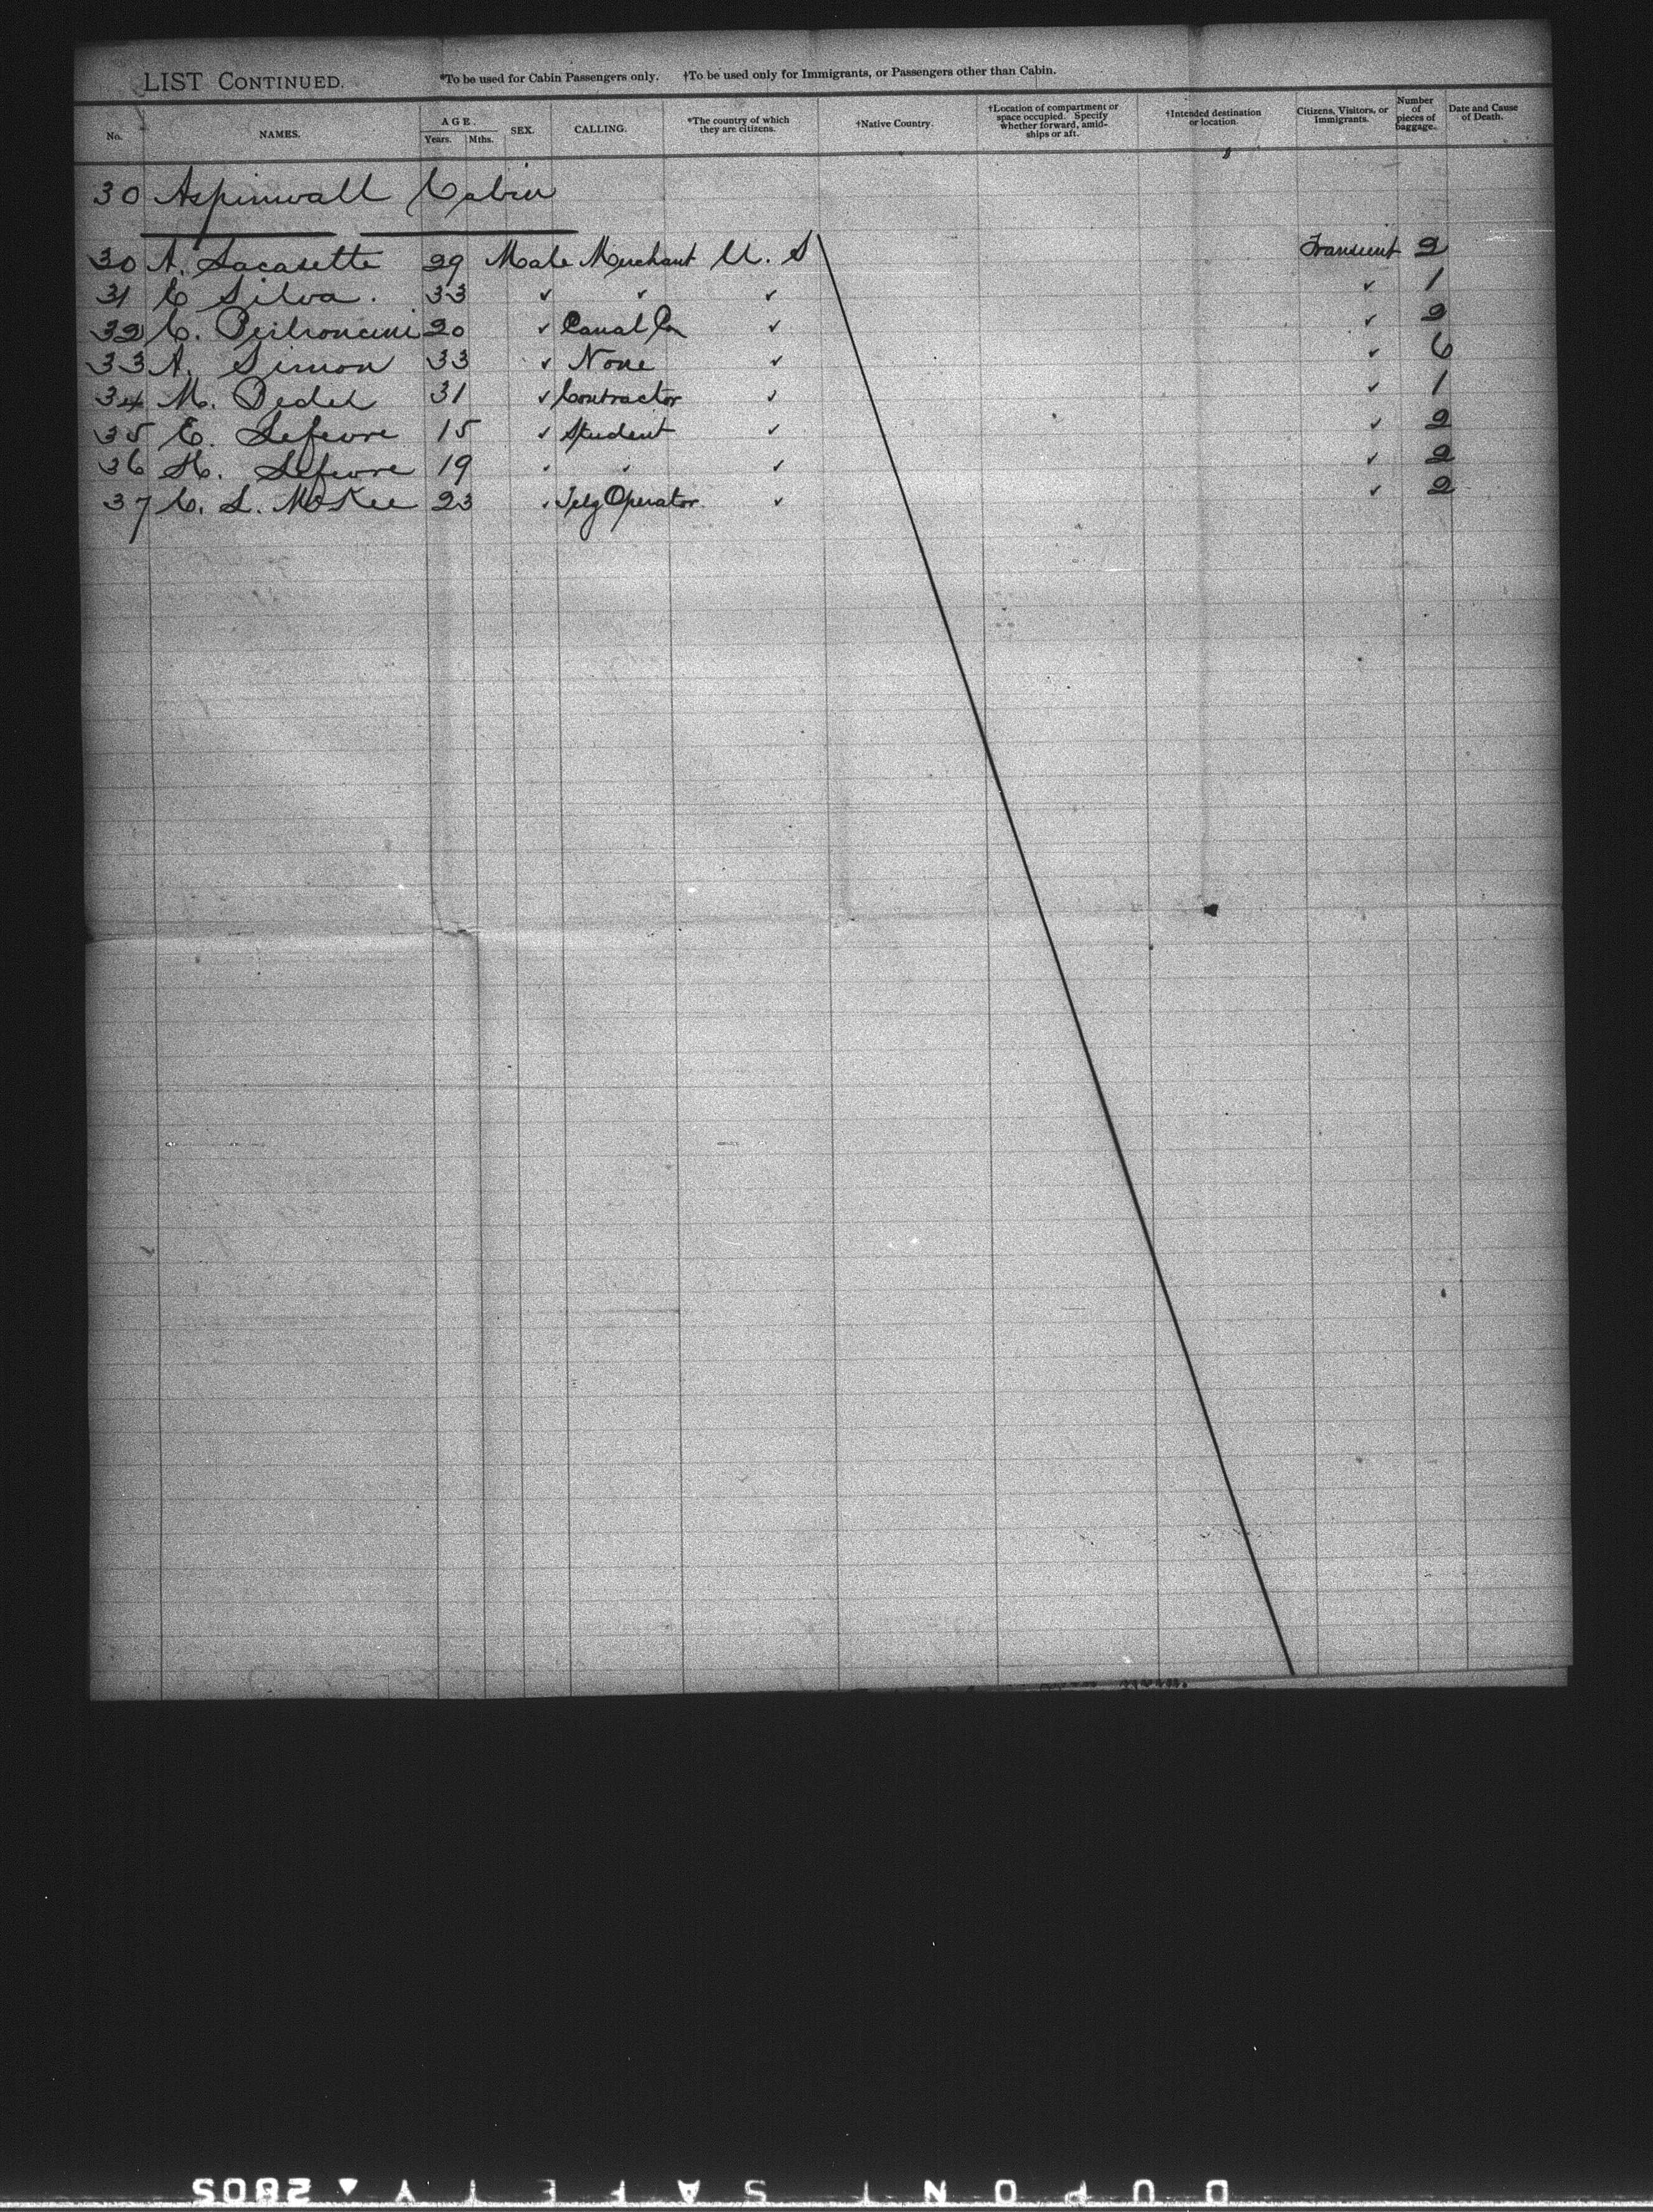 LIST CONTINUED. *To be used for Cabin Passengers only. †To be used only for Immigrants, or Passengers other than Cabin.
No. NAMES. AGE. Years. Mths. SEX. CALLING. *The country of which they are citizens. †Native Country. †Location of compartment or space occupied. Specify whether forward, amidships or aft. †Intended destination or location. Citizens, Visitors, or Immigrants. Number of pieces of baggage. Date and Cause of Death.
30 Aspinwall Cabin
30 A. Lacasette 29 Male Merchant U. S Transient 2
31 C Silva. 33 ✓ ✓ ✓ ✓ 1
32 C. 20 ✓ Canal Co ✓ ✓ 2
33 A. Simon 33 ✓ None ✓ ✓ 6
34 M. Pedel 31 ✓ Contractor ✓ ✓ 1
35 E. Lefevre 15 ✓ Student ✓ ✓ 2
36 H. Lefevre 19 ✓ ✓ ✓ ✓ 2
37 C. L. McKee 23 ✓ Telg Operator ✓ ✓ 2
DUPONT SAFETY ▲ 2805